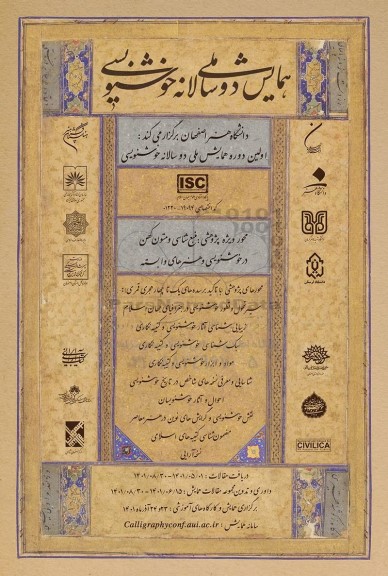 همایش دوسالانه ملی خوشنویسی
دانشگاه هنر اصفهان برگزار می کند :
اولین دوره همایش ملی دوسالانه خوشنویسی
ISC
محور ویژه پژوهشی : منبع شناسی و متون کهن
در خوشنویسی و هنرهای وابسته
محورهای پژوهشی با تاکید بر سده‌های یک تا چهار هجری قمری :
سیر تحول و نفوذ خوشنویسی در جغرافیای جهان اسلام
زیبایی شناسی آثار خوشنویسی و کتیبه نگاری
سبک شناسی خوشنویسی و کتیبه نگاری
مواد و ابزار خوشنویسی و کتیبه نگاری
شناسایی و معرفی نسخه های شاخص در تاریخ خوشنویسی
احوال و آثار خوشنویسان
نقش خوشنویسی و گرایش های نوین در هنر معاصر
مضمون شناسی کتیبه های اسلامی
نسخه آرایی
CIVILICA
دریافت مقالات : ۱۴۰۱/۰۵/۰۱ - ۱۴۰۱/۰۸/۳۰
داوری و تدوین مجموعه مقالات همایش : ۱۴۰۱/۰۶/۱۵ - ۱۴۰۱/۰۸/۳۰
برگزاری همایش و کارگاه های آموزشی : ۲۳ و ۲۴ آذرماه ۱۴۰۱
سامانه همایش : Calligraphyconf.aui.ac.ir